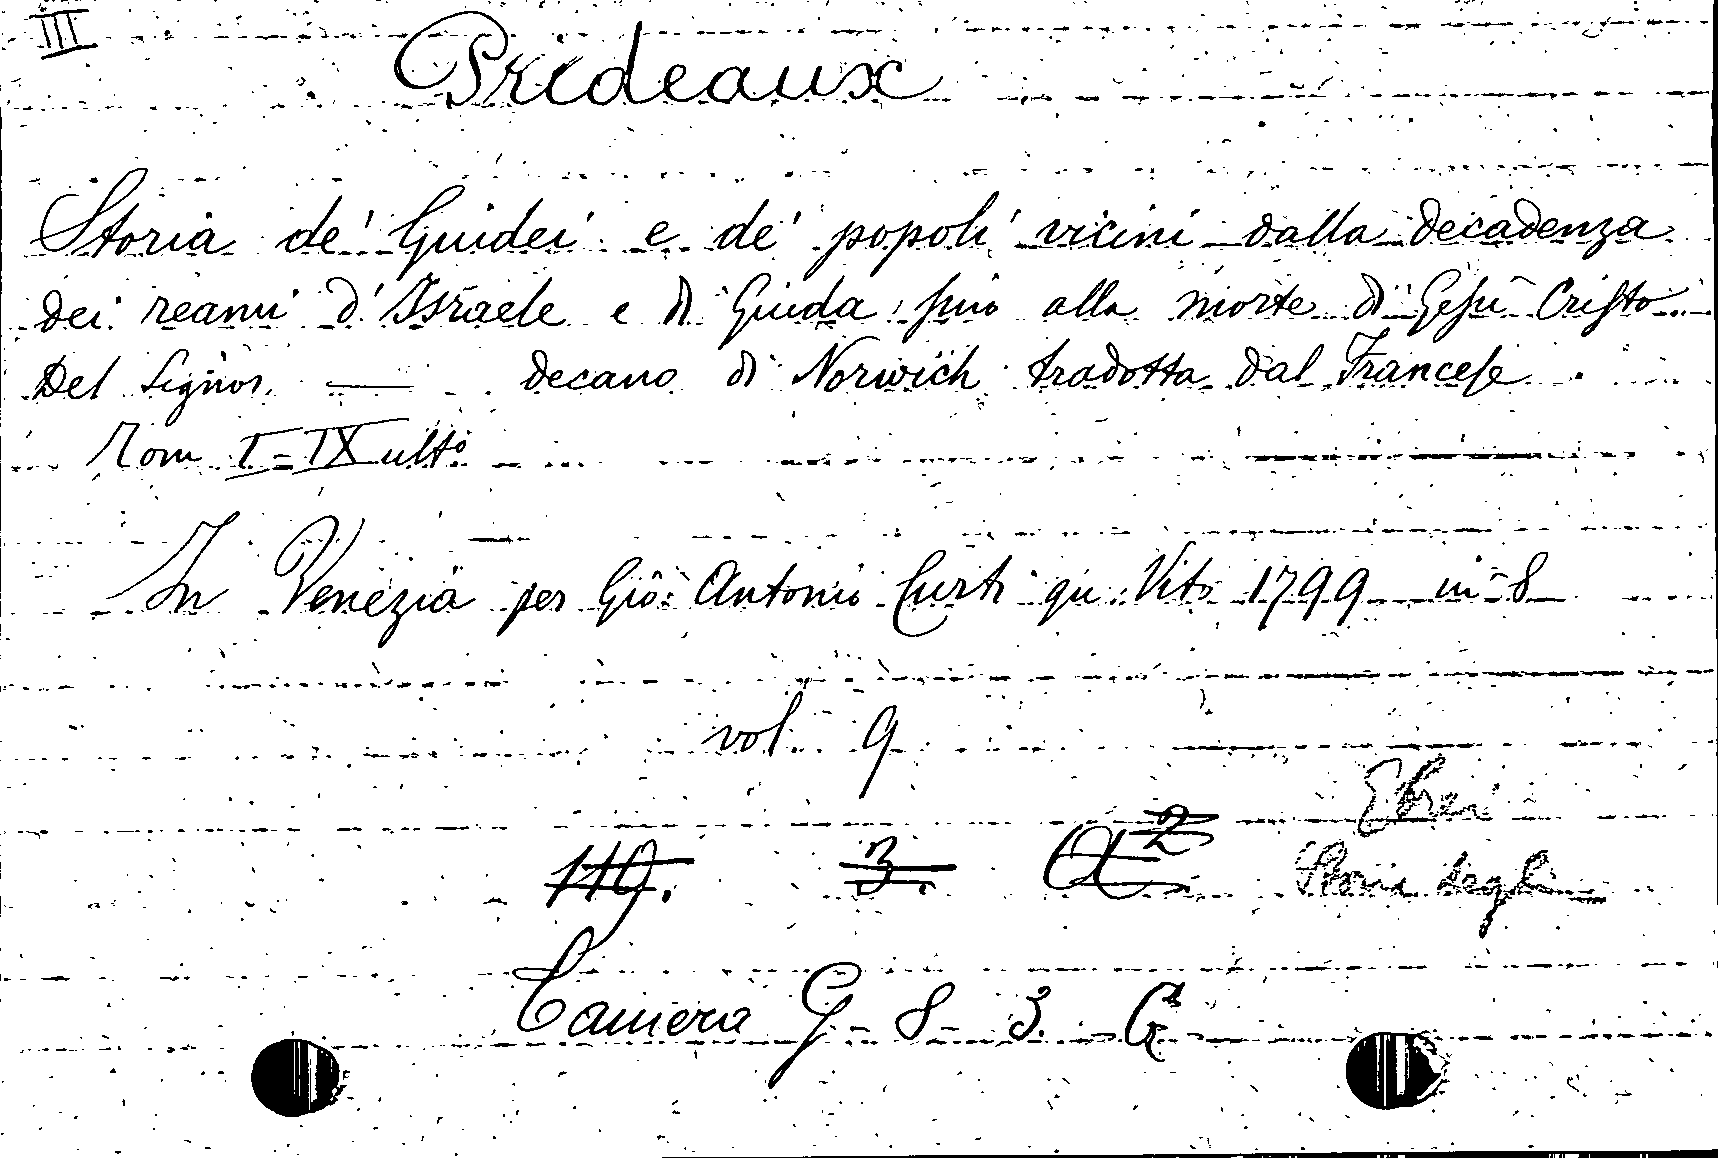 III
Prideaux
Storia de' Giudei e de' popoli vicini dalla decadenza
dei reami d'Israele e di Giuda fino alla morte di Gesù Cristo
Del Signor — decano di Norwich tradotta dal Francese
Tom I-IX ulto
In Venezia per Gio: Antonio Curti qu: Vito 1799 in-8
vol. 9
Ebrei
119. 3. A2
Storia degli
Camera G - 8 - 3.